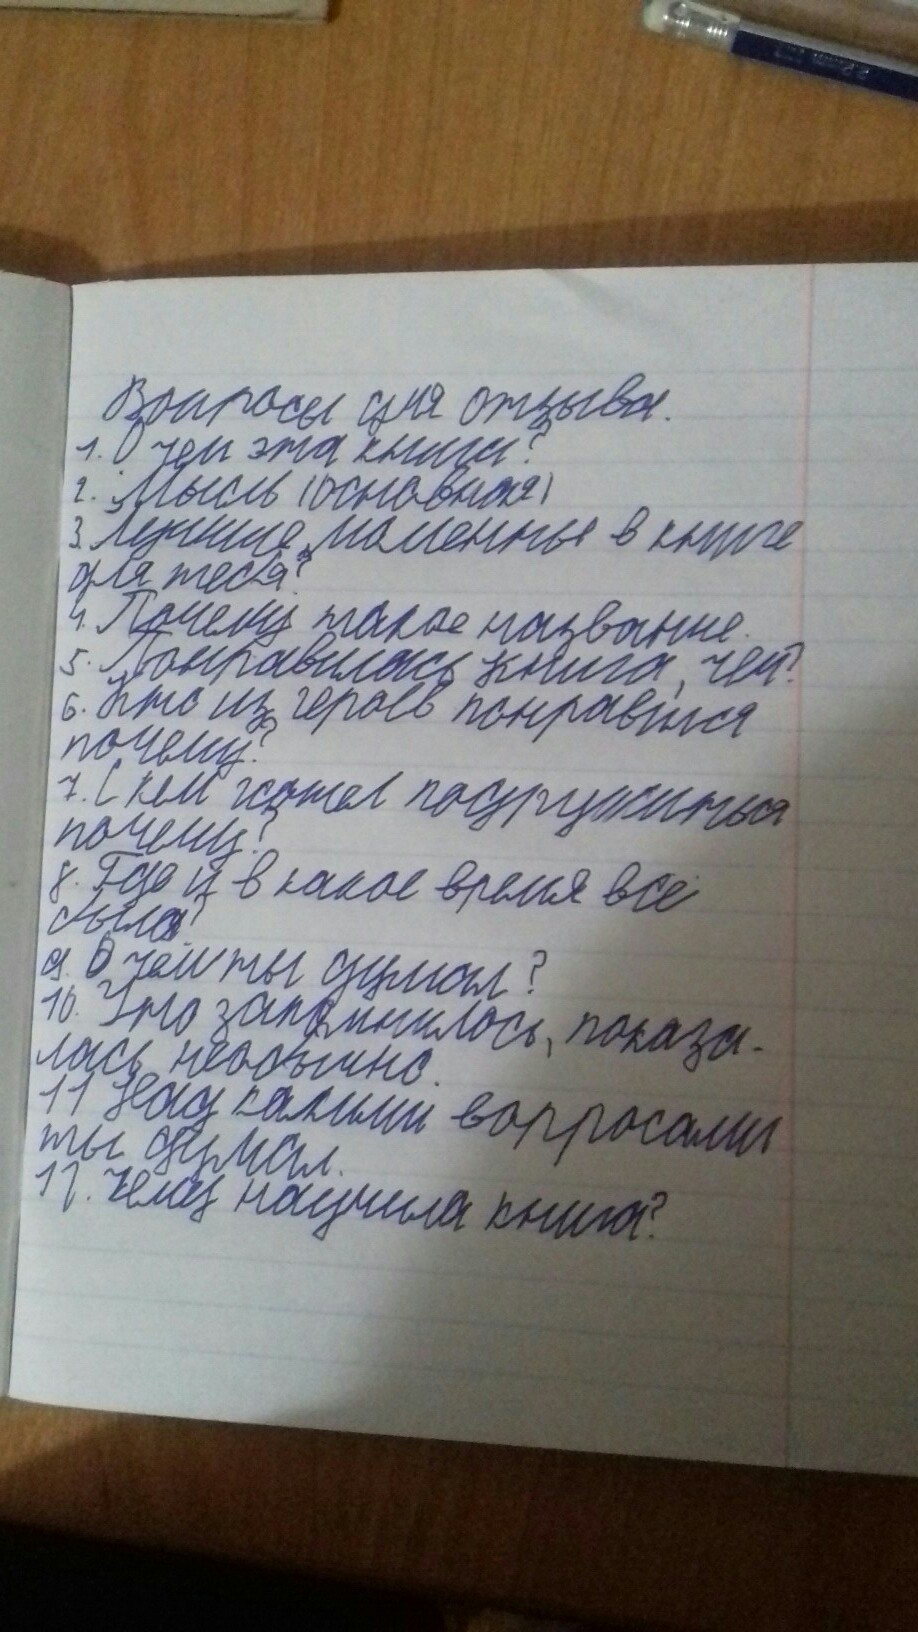 Вопросы для отзыва.
1. О чем эта книга?
2. Мысль (основная)
3. Лучшие моменты в книге
для тебя?
4. Почему такое название.
5. Понравилась книга, чем?
6. Кто из героев понравился
почему?
7. С кем хотел подружиться
почему?
8. Где и в какое время все
было?
9. О чем ты думал?
10. Что запомнилось, показа-
лась необычно.
11 Над какими вопросами
ты думал.
12. Чему научила книга?